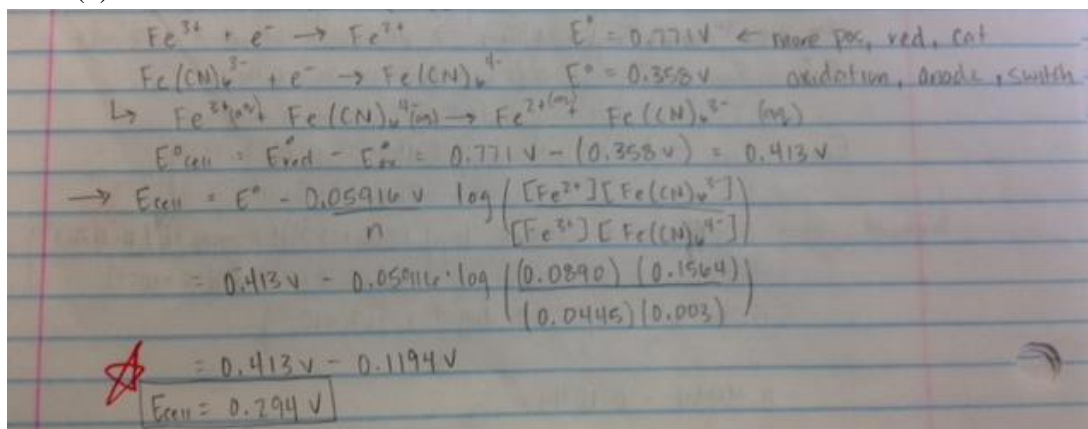 Fe³⁺ + e⁻ → Fe²⁺ E° = 0.771V ← more pos, red, cat
Fe(CN)₆³⁻ + e⁻ → Fe(CN)₆⁴⁻ E° = 0.358V oxidation, anode, switch
↳ Fe³⁺(aq) + Fe(CN)₆⁴⁻(aq) → Fe²⁺(aq) + Fe(CN)₆³⁻ (aq)
E°cell = E°red - E°ox = 0.771V - (0.358V) = 0.413V
→ Ecell = E° - 0.05916 V / n log ([Fe²⁺][Fe(CN)₆³⁻] / [Fe³⁺][Fe(CN)₆⁴⁻])
= 0.413V - 0.05916 · log ((0.0890)(0.1564) / (0.0445)(0.003))
= 0.413V - 0.1194V
Ecell = 0.294 V